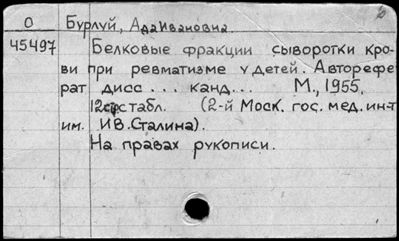 О Бурлуй, Ада Ивановна.
45497 Белковые фракции сыворотки кро-
ви при ревматизме у детей. Авторефе-
рат дисс... канд... М., 1955.
12 с. с табл. (2-й Моск. гос. мед. ин-т
им. И.В. Сталина).
На правах рукописи.